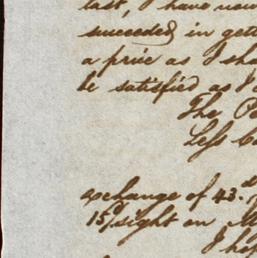 last, I have now
succeeded in gett
a price as I sha
be satisfied as I
The Pe
Less
exchange of 43.d
15d/sight on
I ho